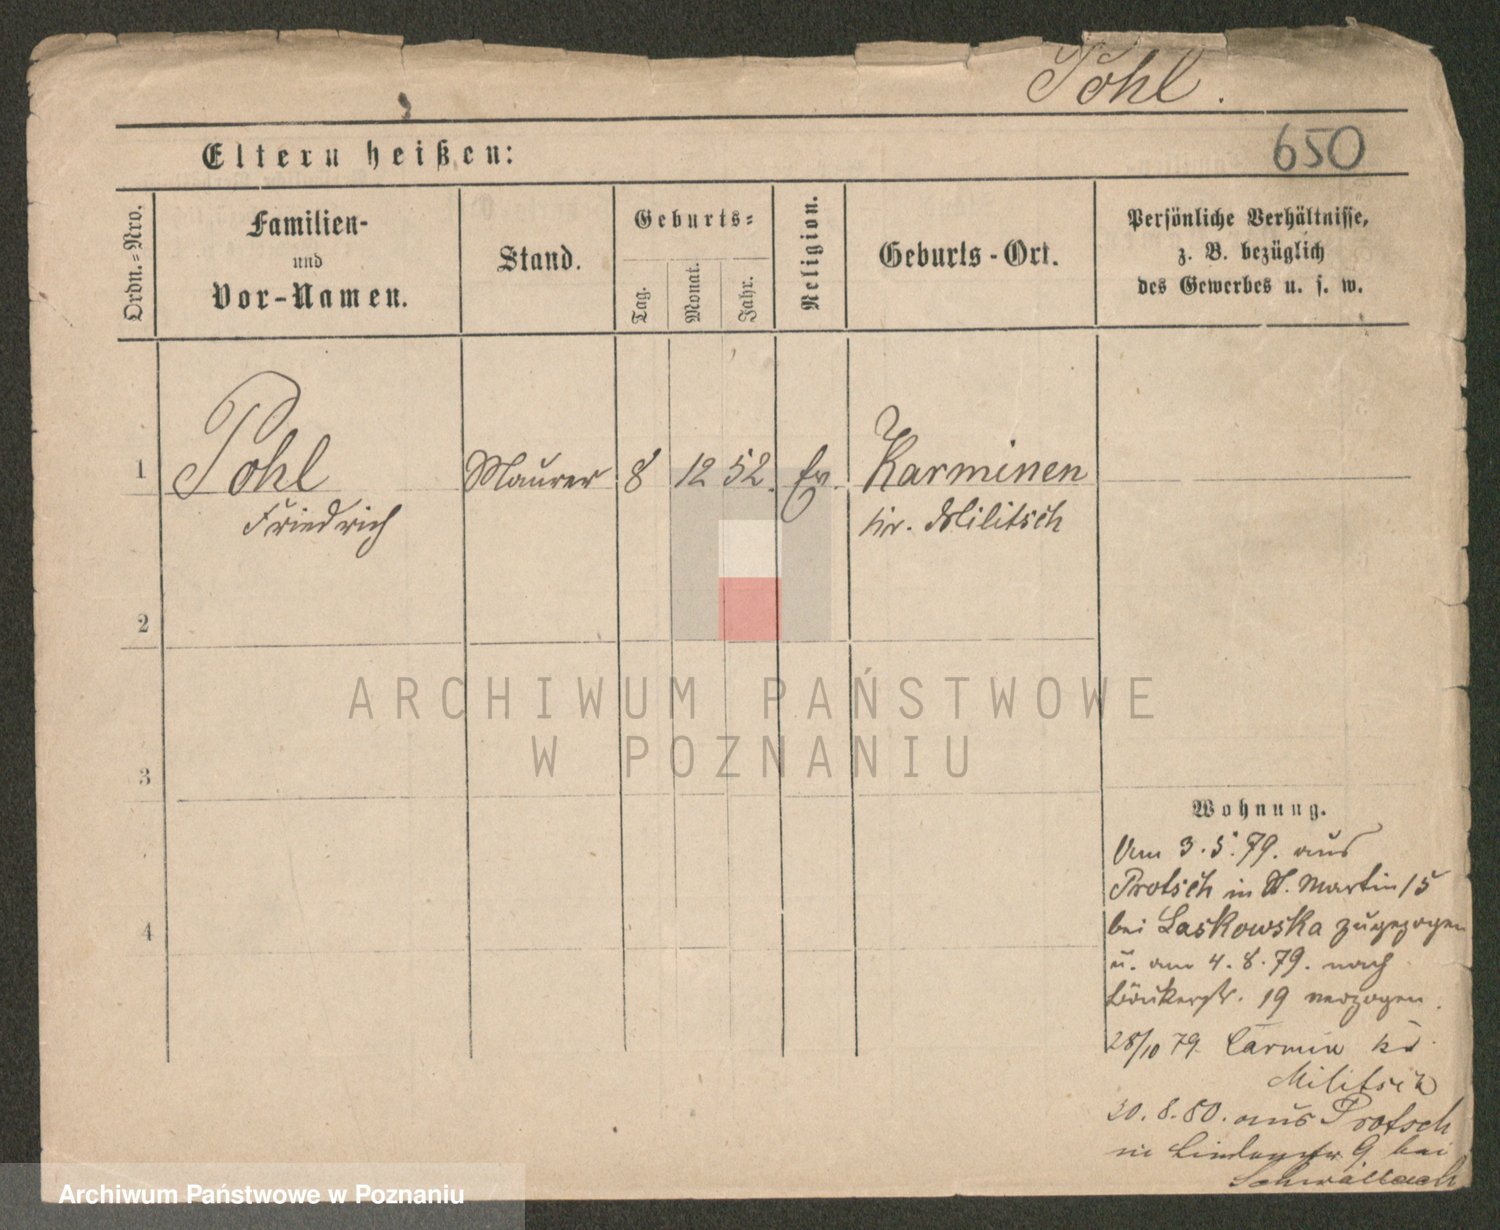 Pohl.
650
Eltern heißen:
Ordn.=Nro.
Familien-
und
Vor-Namen.
Stand.
Geburts=
Tag.
Monat.
Jahr.
Religion.
Geburts-Ort.
Persönliche Verhältnisse,
z. B. bezüglich
des Gewerbes u. s. w.
1
Pohl
Friedrich
Maurer
8
12
52.
Ev.
Karminen
kr. Militsch
2
3
4
ARCHIWUM PAŃSTWOWE
W POZNANIU
Wohnung.
Am 3.5.79. aus
Protsch in St. Martin 15
bei Laskowska zugezogen
u. am 4.8.79. nach
19 verzogen.
28/10 79. Carmin kr.
Militsch
30.8.80. aus Protsch
in Lindenstr 9 bei
Archiwum Państwowe w Poznaniu